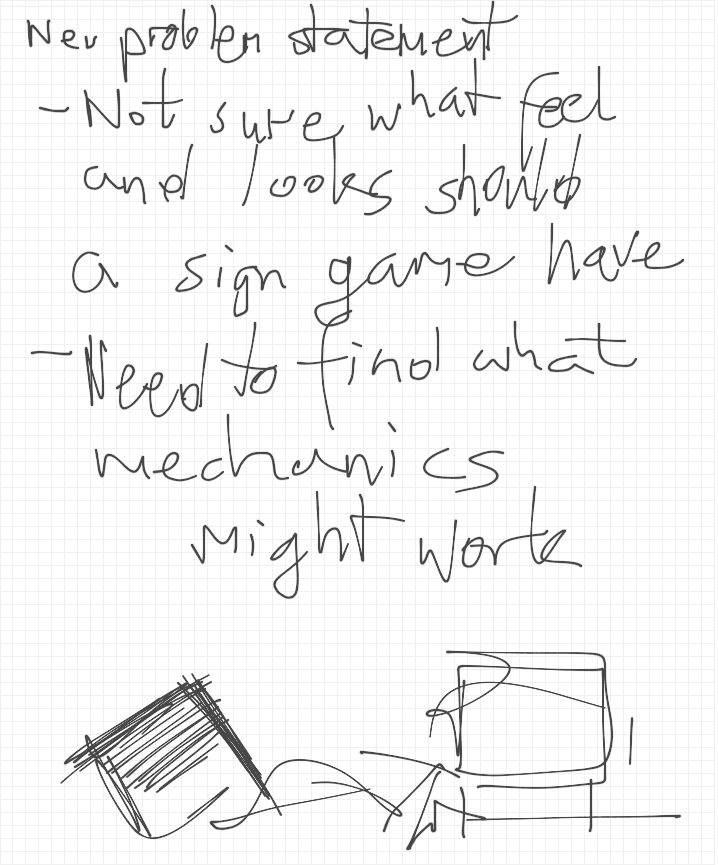 New problem statement
- Not sure what feel
and looks should
a sign game have
- Need to find what
mechanics
might work